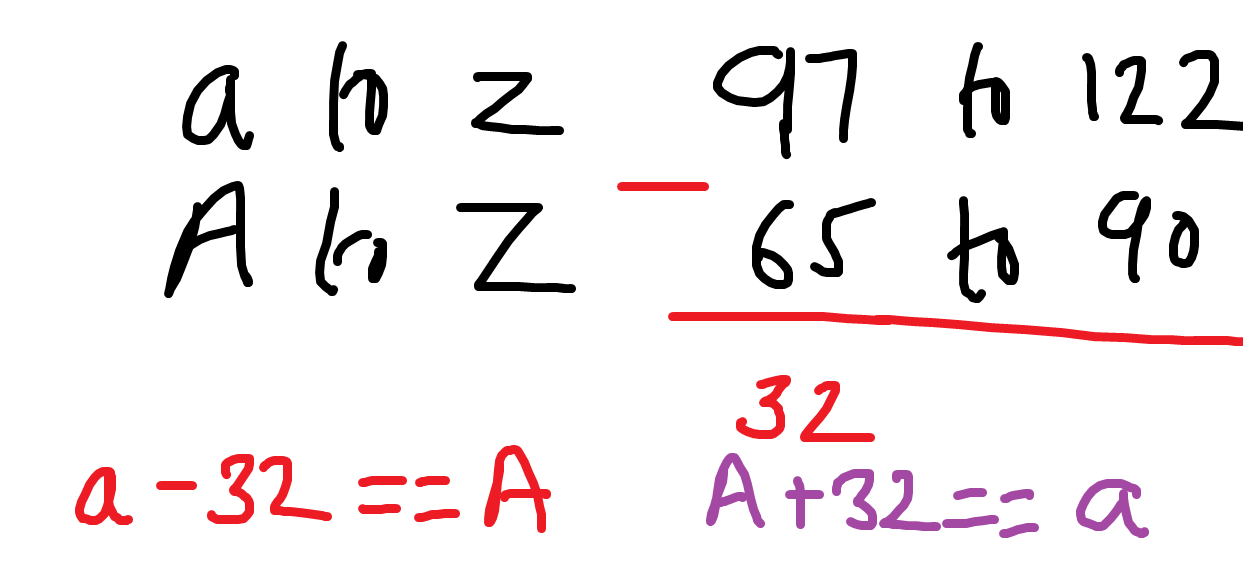 a to z 97 to 122
A to Z - 65 to 90
32
a - 32 == A A + 32 == a